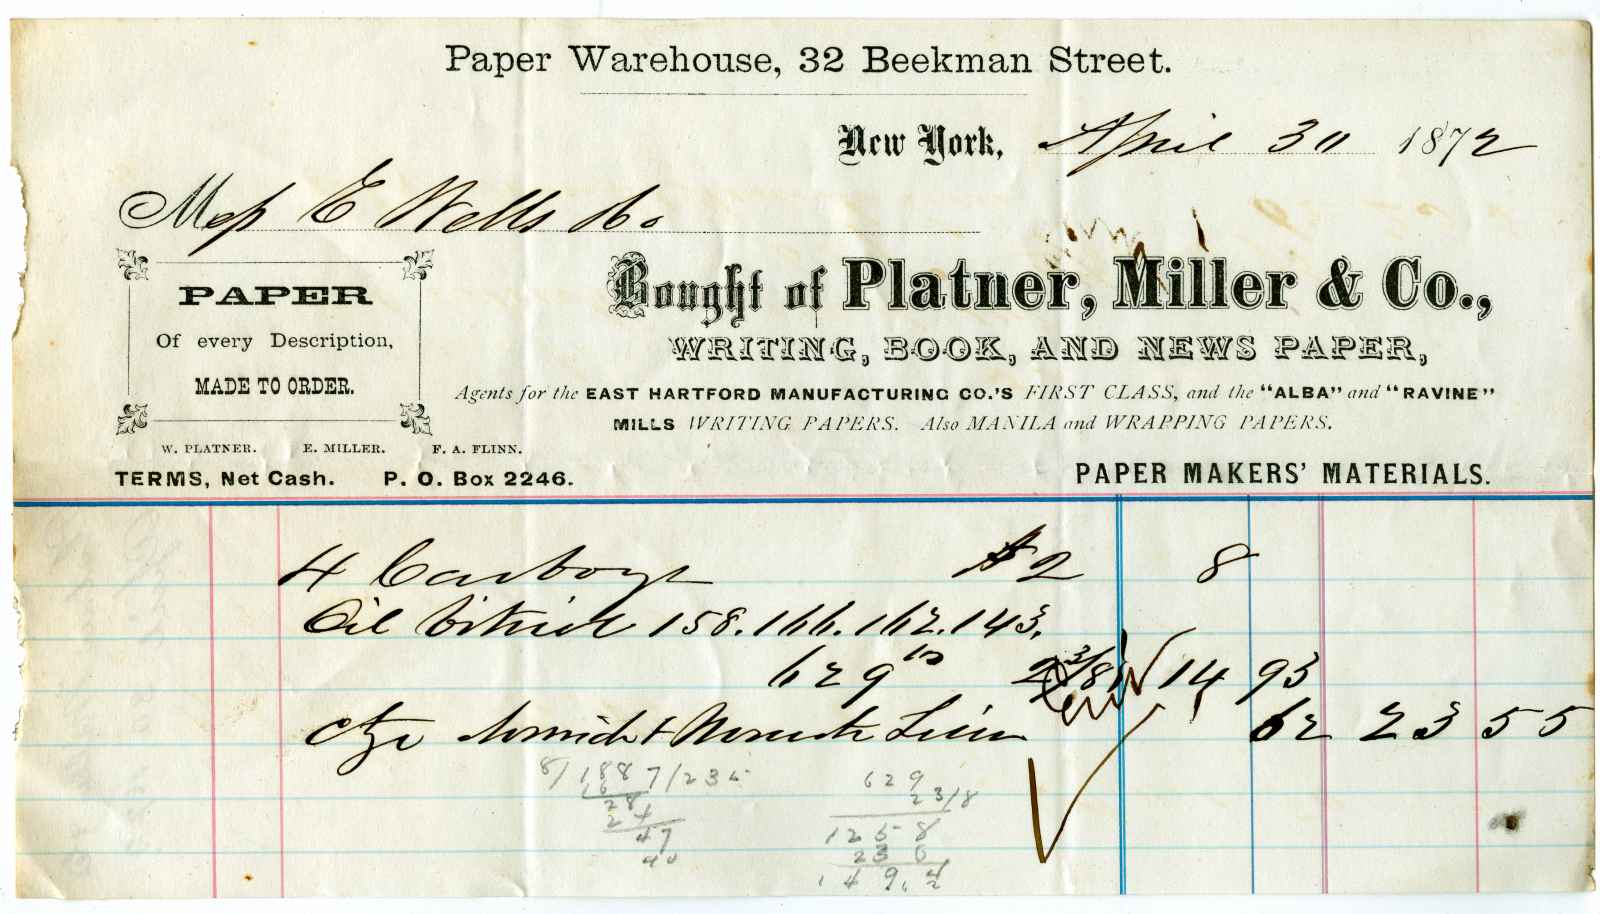 Paper Warehouse, 32 Beekman Street.
New York, April 30 1872
Mess E Wells & Co
PAPER
Of every Description,
MADE TO ORDER.
W. PLATNER. E. MILLER. F. A. FLINN.
TERMS, Net Cash. P. O. Box 2246.
Bought of Platner, Miller & Co.,
WRITING, BOOK, AND NEWS PAPER,
Agents for the EAST HARTFORD MANUFACTURING CO.'S FIRST CLASS, and the "ALBA" and "RAVINE"
MILLS WRITING PAPERS. Also MANILA and WRAPPING PAPERS.
PAPER MAKERS' MATERIALS.
4 Carboys $2 8
Oil Vitriol 158. 166. 162. 143.
629 lbs 2 3/8 14 93
Ctge 62 23 55
8/1887/235
16
28
24
47
40
629
2 3/8
1258
236
149.4